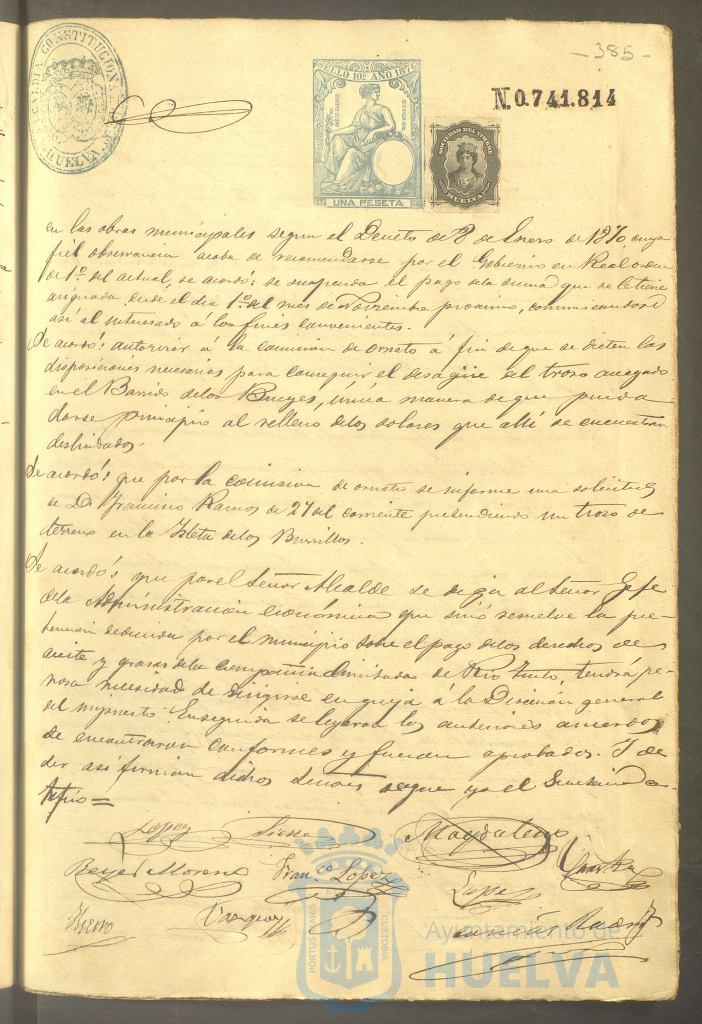 - 385 -
ALCALDIA CONSTITUCIONAL DE HUELVA
SELLO 10º AÑO 187
UNA PESETA
N0.741.814
SOCIEDAD DEL TIMBRE
HUELVA
en las obras municipales segun el Decreto de 8 de Enero de 1870, cuya
fiel observancia acaba de recomendarse por el Gobierno en Real orden
de 1º del actual, se acordó: se suspenda el pago de la suma que se le tiene
asignada, desde el dia 1º del mes de Noviembre proximo, comunicandose
así al interesado á los fines convenientes.
Se acordó: autorizar á la comision de ornato á fin de que se dicten las
disposiciones necesarias para conseguir el desagüe del trozo anegado
en el Barrio de los Bueyes, única manera de que pueda
darse principio al relleno de los solares que allí se encuentran
deslindados.
Se acordó: que por la comision de ornato se informe una solicitud
de Dn Francisco Ramos de 27 del corriente pretendiendo un trozo de
terreno en la Isleta de los Burrillos.
Se acordó: que por el Señor Alcalde se diga al Señor Gefe
de la Administracion económica que sinó resuelve la pre-
tension deducida por el municipio sobre el pago de los derechos de
aceite y grasas de la Compañia limitada de Rio Tinto, tendrá pe-
nosa necesidad de dirigirse en queja á la Direccion general
del impuesto. Enseguida se leyeron los anteriores acuerdos
se encontraron conformes y fueron aprobados. Y de
ser así firman dichos Señores segun yo el Secretario cer-
tifico =
Lopez Siessa Magdaleno
Reyes Moreno Franco Lopez Lopez
Hierro Vazquez
PORTUS MARIS CUSTODIA
Ayuntamiento de
HUELVA